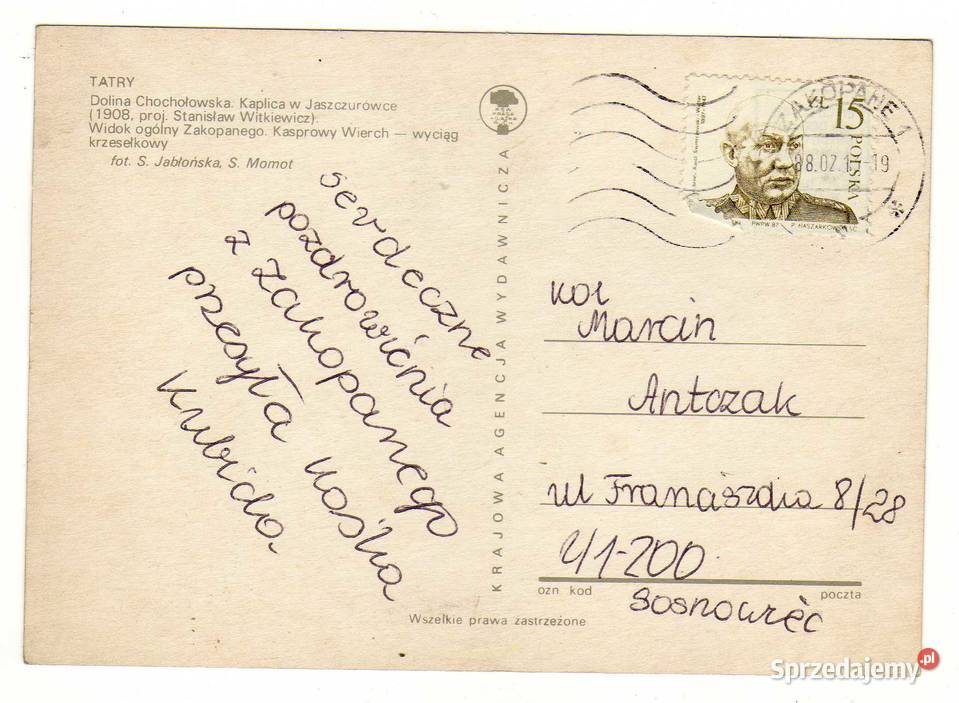 TATRY
Dolina Chochołowska. Kaplica w Jaszczurówce
(1908, proj. Stanisław Witkiewicz).
Widok ogólny Zakopanego. Kasprowy Wierch — wyciąg
krzesełkowy
fot. S. Jabłońska, S. Momot
serdeczne
pozdrowienia
z Zakopanego
przesyła Kośka
Kubicka
KRAJOWA AGENCJA WYDAWNICZA
ZAKOPANE 1
ZŁ 15
POLSKA
88.02.1 -19
PWPW.87
kol
Marcin
Antczak
ul 8/28
41-200
ozn kod
poczta
Sosnowiec
Wszelkie prawa zastrzeżone
Sprzedajemy.pl